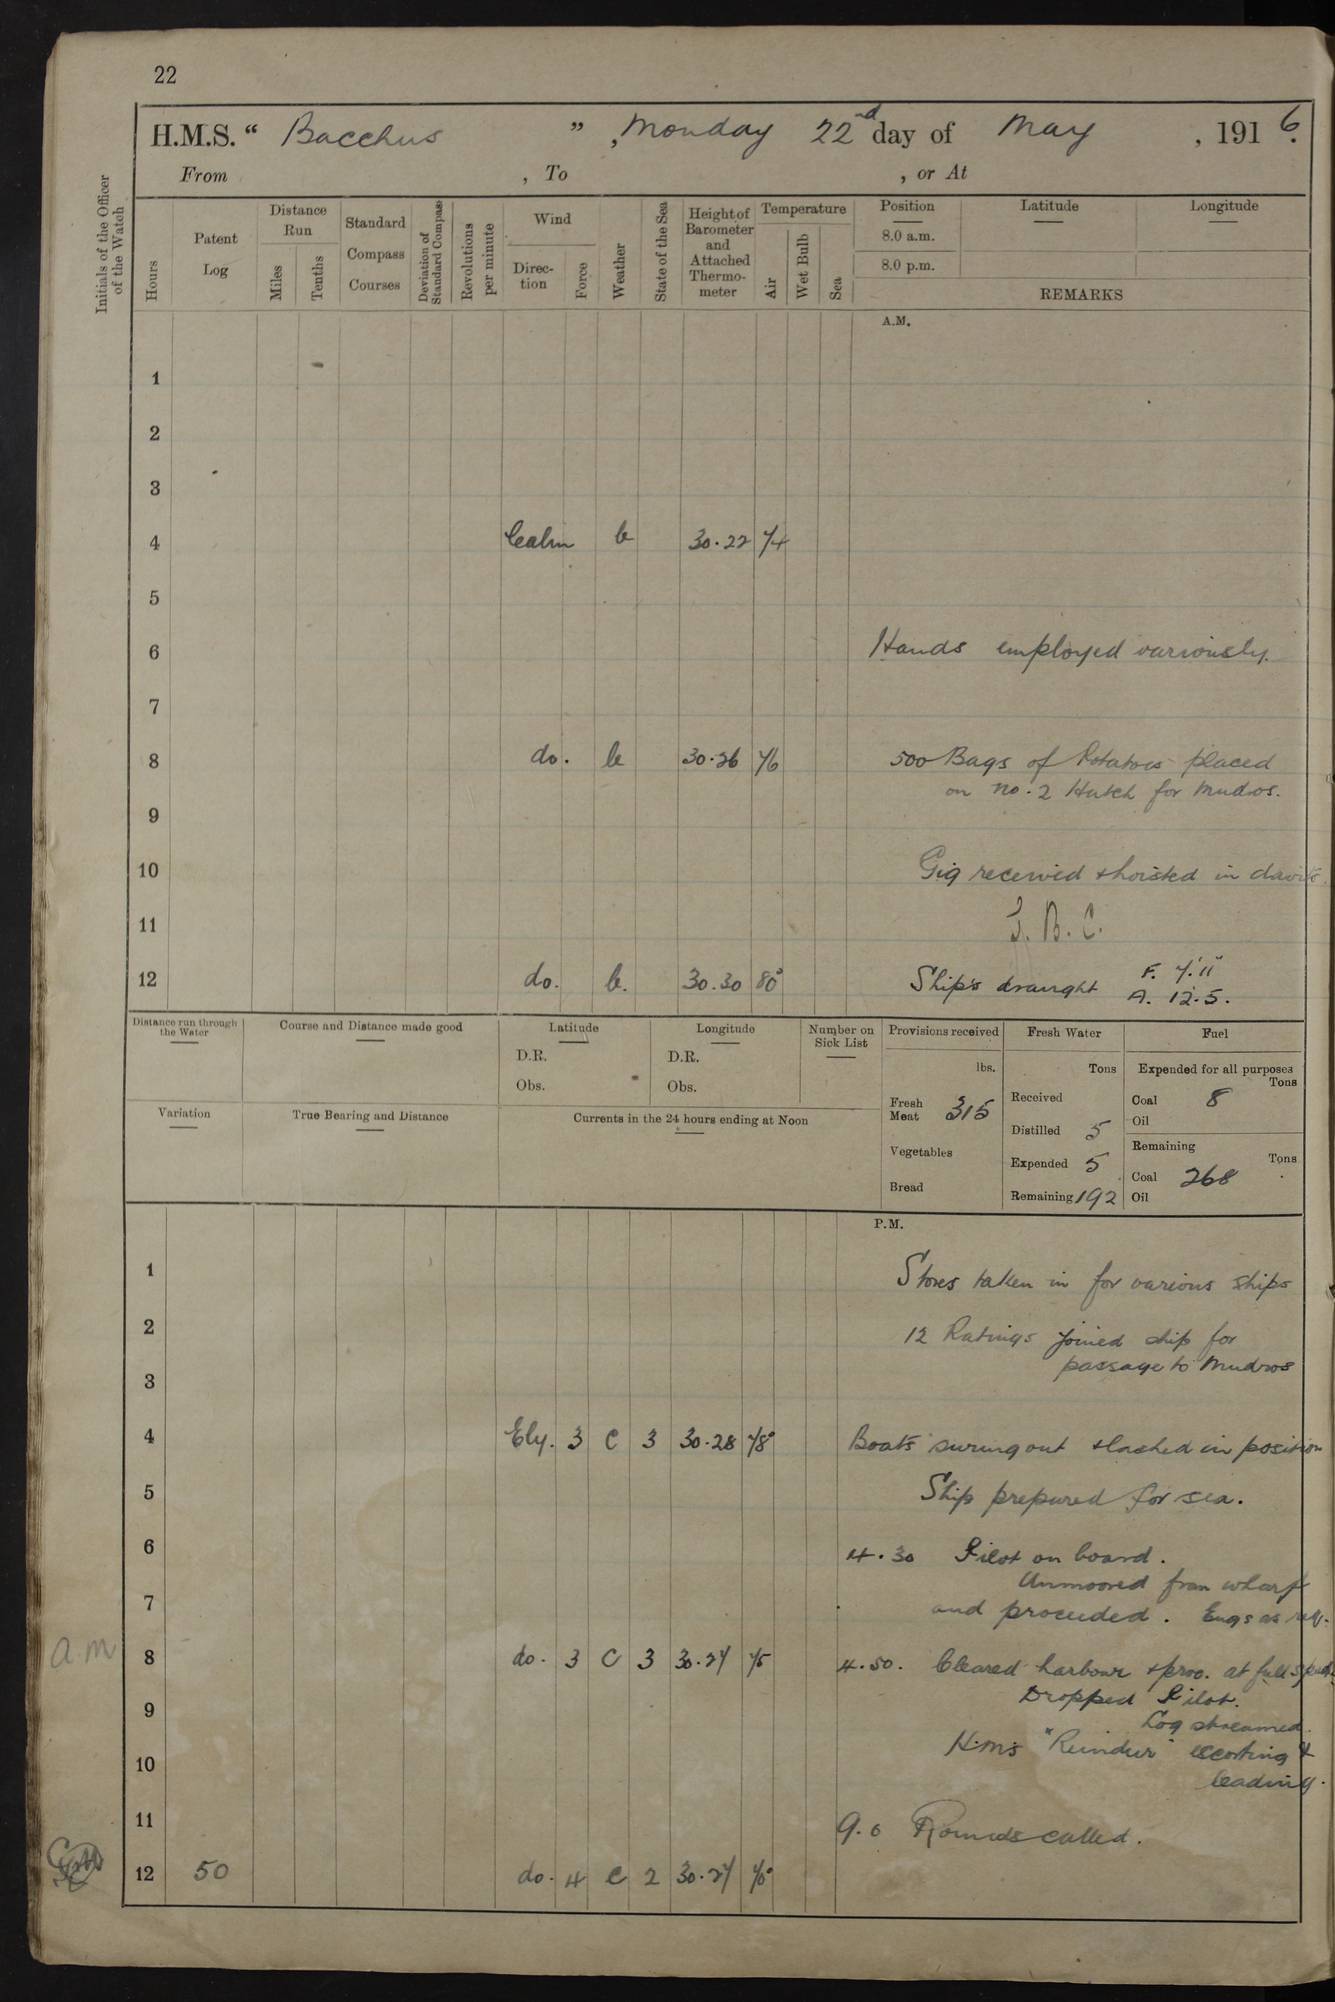 22
H.M.S. “ Bacchus ”, Monday 22nd day of May, 1916.
From , To , or At
Initials of the Officer of the Watch
Hours
Patent Log
Distance Run
Miles
Tenths
Standard Compass Courses
Deviation of Standard Compass
Revolutions per minute
Wind
Direction
Force
Weather
State of the Sea
Height of Barometer and Attached Thermometer
Temperature
Air
Wet Bulb
Sea
Position
8.0 a.m.
8.0 p.m.
Latitude
Longitude
REMARKS
A.M.
1
2
3
4 Calm b 30.22 74
5
6 Hands employed variously.
7
8 do. b 30.26 76 500 Bags of Potatoes placed
on No. 2 Hatch for Mudros.
9
10 Gig received & hoisted in davits.
11 B. C.
12 do. b. 30.30 80° Ship's draught F. 7'.11"
A. 12.5.
Distance run through the Water
Course and Distance made good
Latitude
D.R.
Obs.
Longitude
D.R.
Obs.
Number on Sick List
Provisions received
lbs.
Fresh Meat 315
Vegetables
Bread
Fresh Water
Tons
Received
Distilled 5
Expended 5
Remaining 192
Fuel
Expended for all purposes
Tons
Coal 8
Oil
Remaining
Tons
Coal 268
Oil
Variation
True Bearing and Distance
Currents in the 24 hours ending at Noon
P.M.
1 Stores taken in for various ships
2 12 Ratings joined ship for
passage to Mudros
3
4 Ely. 3 C 3 30.28 78° Boats swung out & lashed in position
5 Ship prepared for sea.
6 4.30 Pilot on board.
Unmoored from wharf
7 and proceeded. Engs as req.
a.m
8 do. 3 C 3 30.27 75 4.50. Cleared harbour & proc. at full speed.
Dropped Pilot.
9 Log streamed.
H.M.S "Reindeer" escorting &
10 leading.
11 9.0 Rounds called.
12 50 do. 4 C 2 30.27 70°